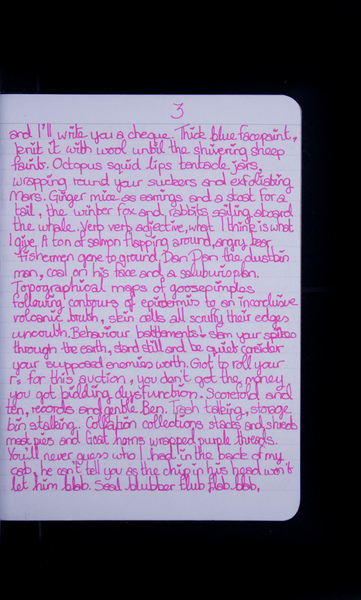 3
and I'll write you a cheque. Thick blue facepaint,
knit it with wool until the shivering sheep
faints. Octopus squid lips tentacle jars,
wrapping round your suckers and exfoliating
Mars. Ginger mice as earrings and a stoat for a
tail, the winter fox and rabbits sailing aboard
the whale. Verb verb adjective, what I think is what
I give. A ton of salmon flapping around, angry bear,
fishermen gone to ground. Dan Dan the dustbin
man, coal on his face and a
Topographical maps of goosepimples
following contours of epidermis to an inconclusive
volcanic truth, skin cells all scruffy their edges
uncouth. Behaviour battlements slam your spikes
through the earth, stand still and be quiet consider
your supposed enemies worth. Got to roll your
r's for this auction, you don't got the money
you got bidding dysfunction. Scorefold and
ten, records and gentle Ben. Trash talking, storage
bin stalking. Collation collections stacks and shreds
meat pies and Goat horns wrapped purple threads.
You'll never guess who I had in the back of my
cab, he can't tell you as the chip in his head won't
let him blab. Seal blubber flub flab blob,